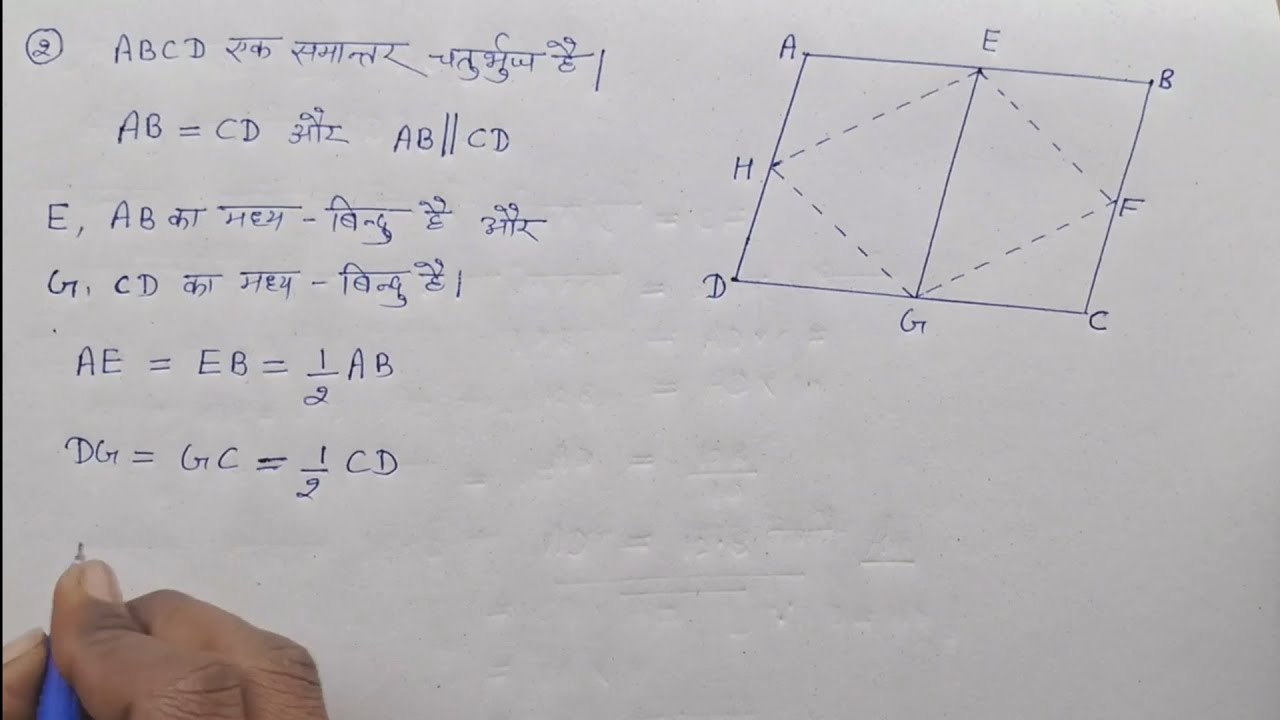 ② ABCD एक समान्तर चतुर्भुज है।
AB = CD और AB || CD
E, AB का मध्य - बिन्दु है और
G, CD का मध्य - बिन्दु है।
AE = EB = 1/2 AB
DG = GC = 1/2 CD
A
E
B
H
F
D
G
C